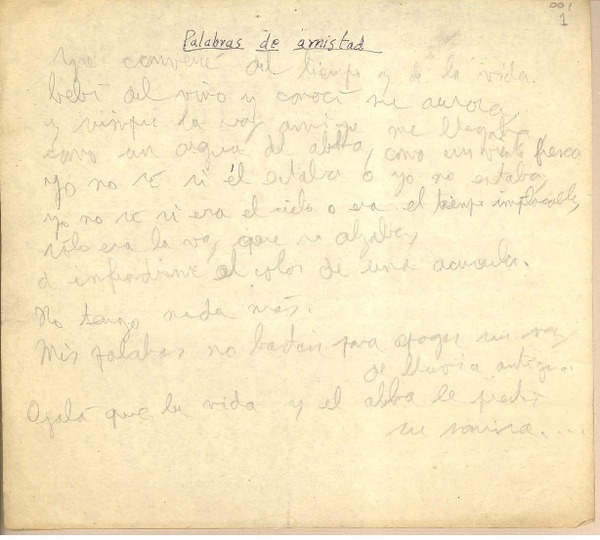 001
1
Palabras de amistad
Yo conversé del tiempo y de la vida.
bebí del vino y conocí su aurora,
y siempre la voz amiga me llegaba
como un agua del alba, como un viento fresca
Yo no sé si él estaba o yo no estaba,
yo no sé si era el cielo o era el tiempo implacable,
sólo era la voz que se alzaba,
a infundirme el color de una acuarela.
No tengo nada más.
Mis palabras no bastan para apagar su voz
de lluvia antigua.
Ojalá que la vida y el alba le
su sonrisa....